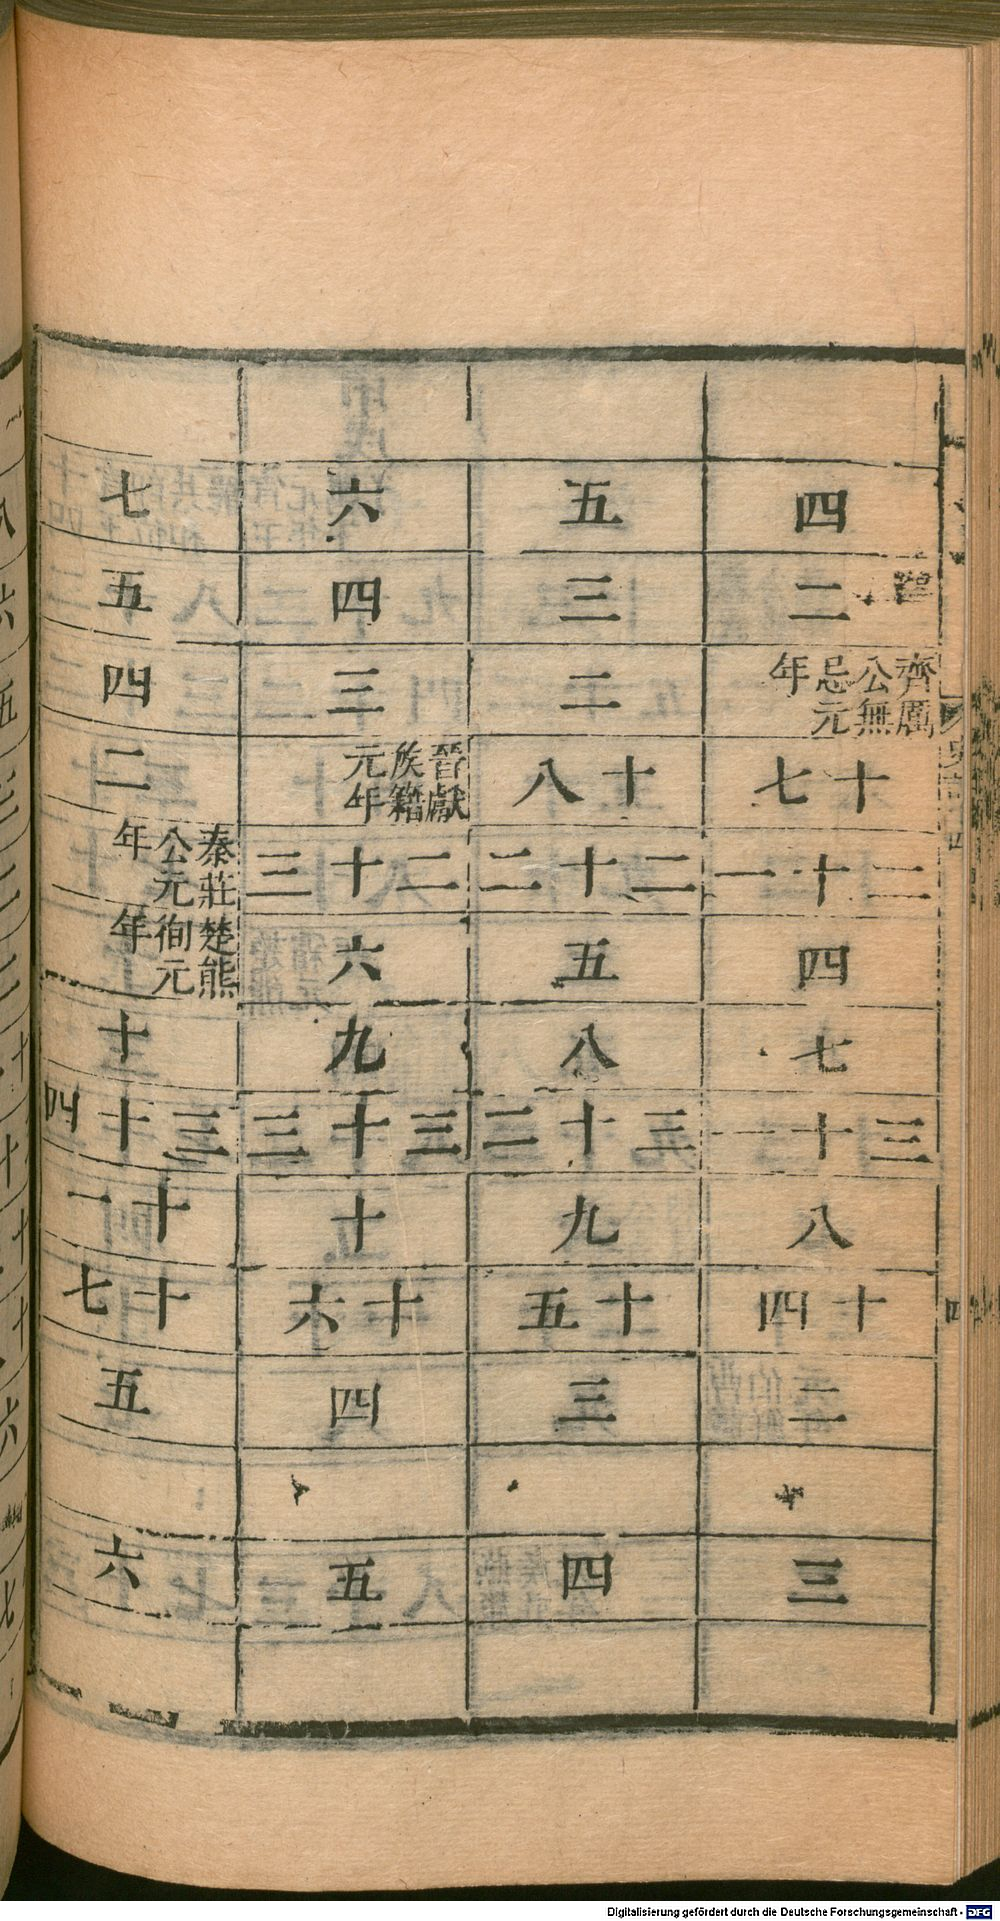 四
二
齊厲公無忌元年
十七
二十一
四
七
三十一
八
十四
二
三
五
三
二
十八
二十二
五
八
三十二
九
十五
三
四
六
四
三
晉獻族籍元年
二十三
六
九
三十三
十
十六
四
五
七
五
四
二
秦莊公元年
楚熊徇元年
十
三十四
十一
十七
五
六
Digitalisierung gefördert durch die Deutsche Forschungsgemeinschaft - DFG